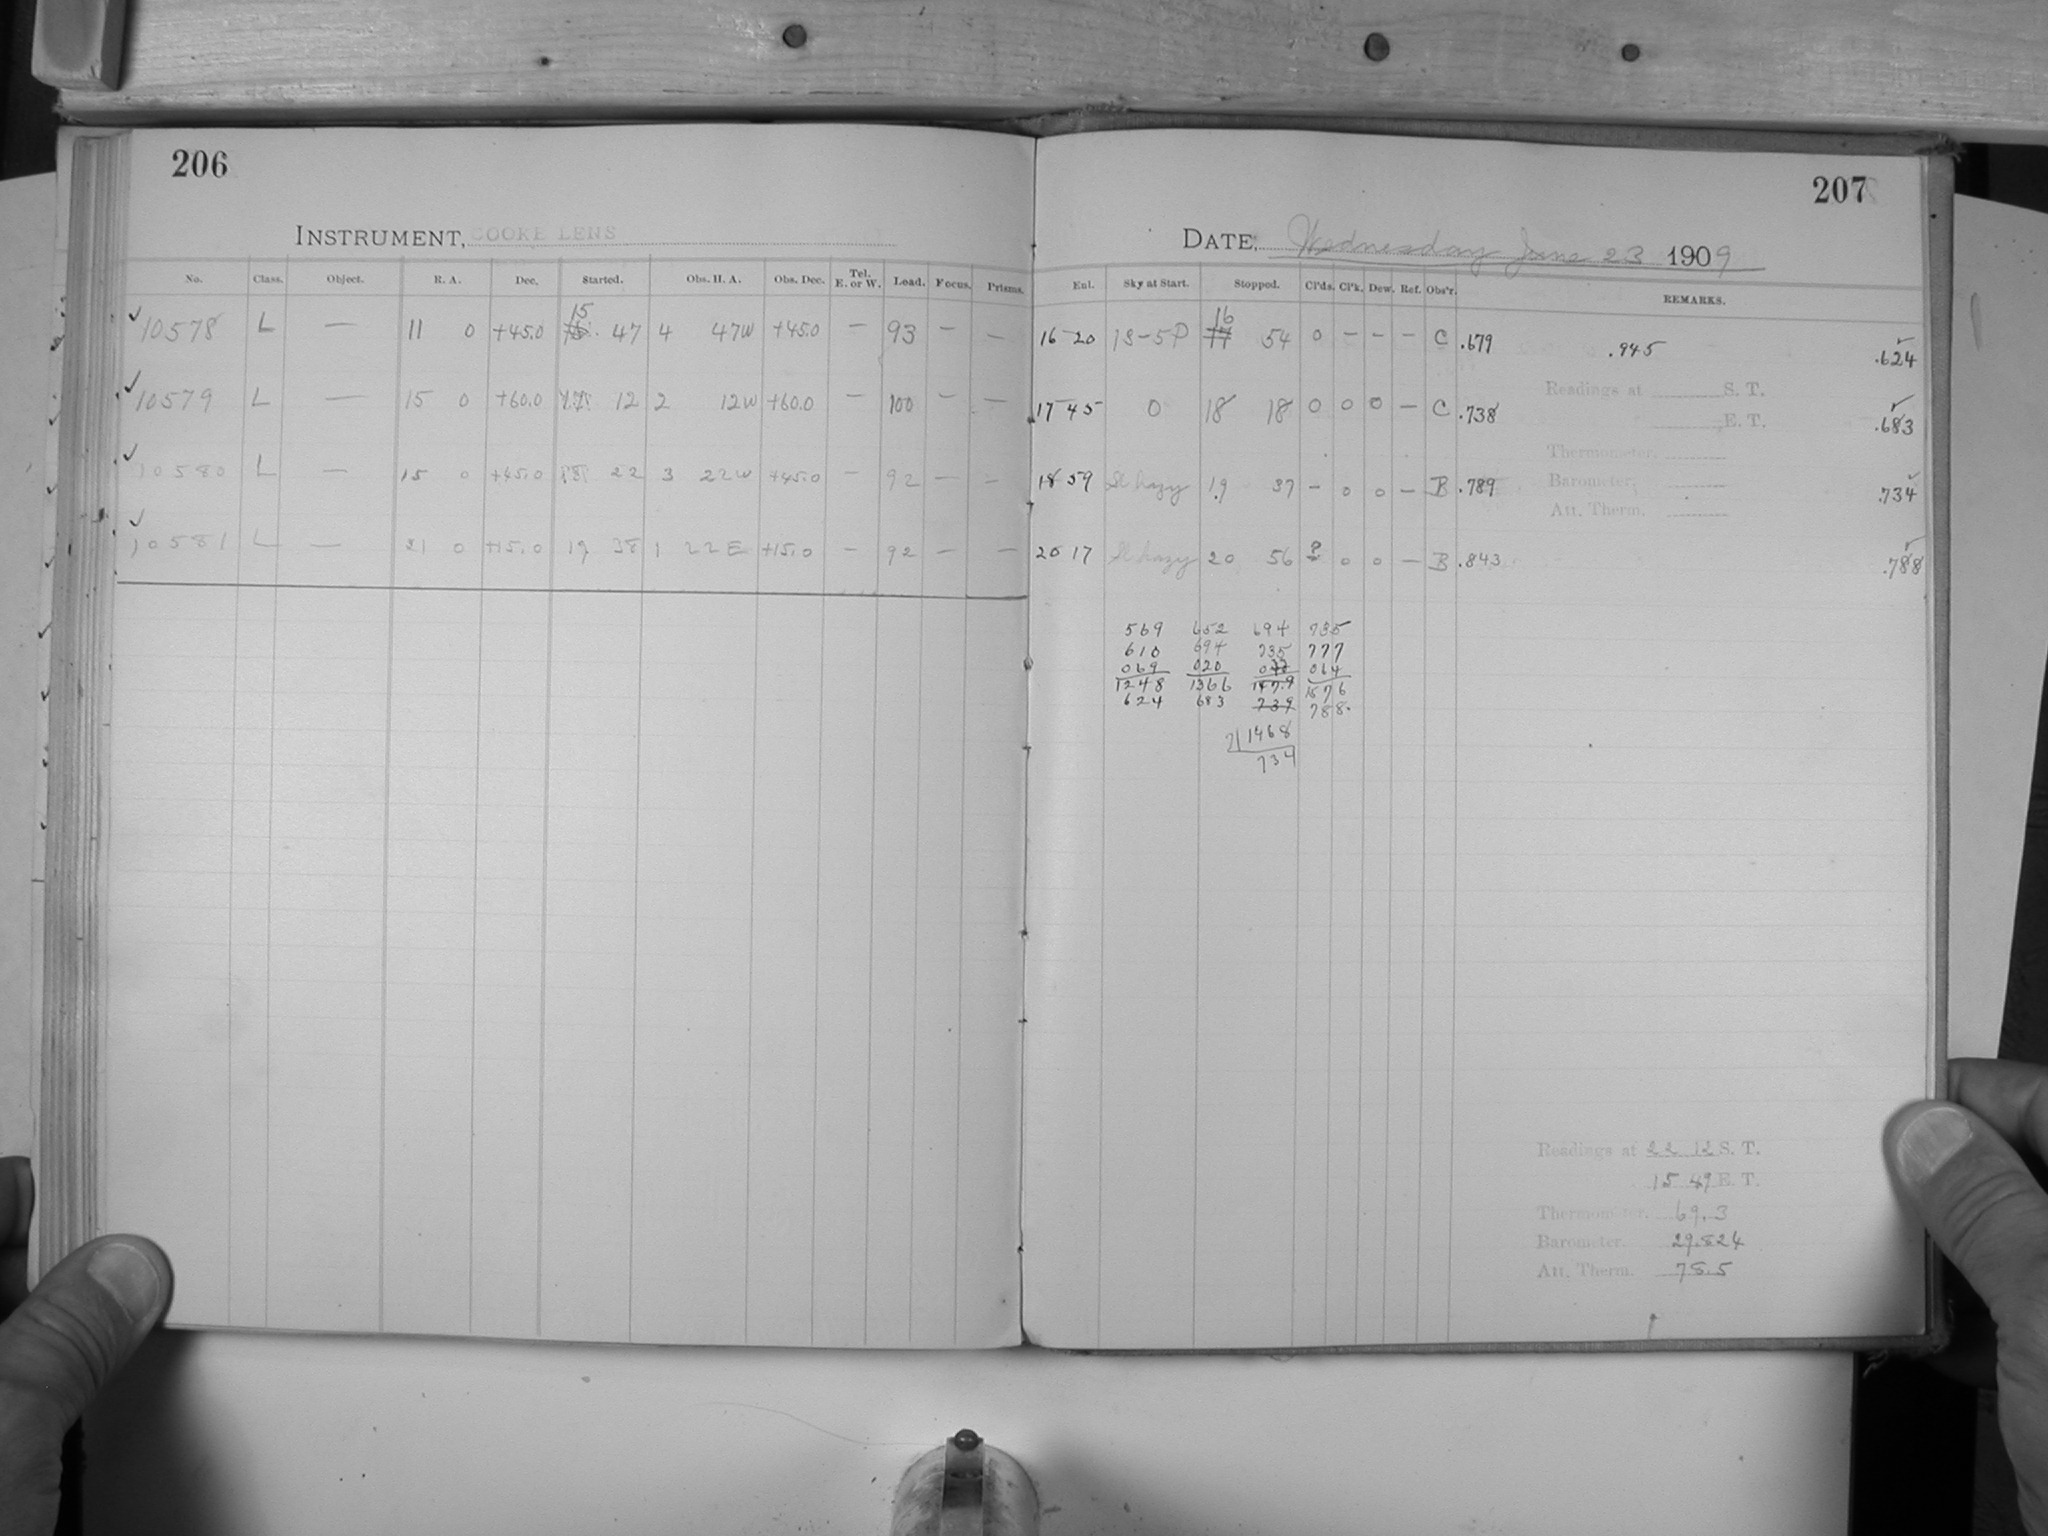 206
INSTRUMENT, COOKE LENS
No. Class. Object. R. A. Dec. Started. Obs. H. A. Obs. Dec. Tel. E. or W. Load. Focus. Prisms.
15
✓10578 L — 11 0 +45.0 47 4 47W +45.0 — 93 — —
✓10579 L — 15 0 +60.0 17 12 2 12W +60.0 — 100 — —
✓10580 L — 15 0 +45.0 18 22 3 22W +45.0 — 92 — —
✓10581 L — 21 0 +15.0 19 38 1 22E +15.0 — 92 — —
207
DATE, Wednesday June 23 1909
Exl. Sky at Start. Stopped. Cl'ds. Cl'k. Dew. Ref. Obs'r. REMARKS.
16
16 20 1S-5P 17 54 0 — — — C .679 .945 .624 ✓
17 45 0 18 18 0 0 0 — C .738 .683 ✓
18 59 Sl hazy 19 37 — 0 0 — B .789 .734 ✓
20 17 Sl hazy 20 56 ? 0 0 — B .843 .788 ✓
Readings at S. T.
E. T.
Thermometer.
Barometer.
Att. Therm.
569 652 694 735
610 694 735 777
069 020 064
1248 1366 1479 1576
624 683 739 788
2|1468
734
Readings at 22 12 S. T.
15 49 E. T.
Thermometer. 69.3
Barometer. 29.824
Att. Therm. 78.5